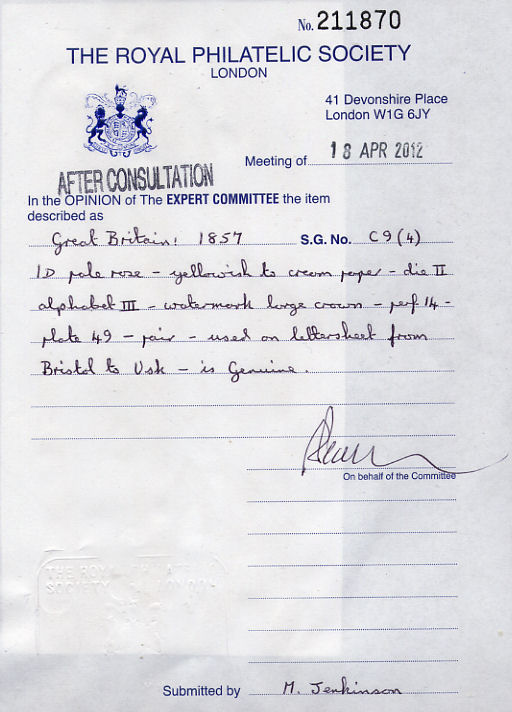 No. 211870
THE ROYAL PHILATELIC SOCIETY
LONDON
41 Devonshire Place
London W1G 6JY
Meeting of 18 APR 2012
AFTER CONSULTATION
In the OPINION of The EXPERT COMMITTEE the item
described as
Great Britain: 1857 S.G. No. C9(4)
1D pale rose - yellowish to cream paper - die II
alphabet III - watermark large crown - perf. 14 -
plate 49 - pair - used on lettersheet from
Bristol to Usk - is Genuine.
On behalf of the Committee
THE ROYAL PHILATELIC
SOCIETY LONDON
Submitted by M. Jenkinson